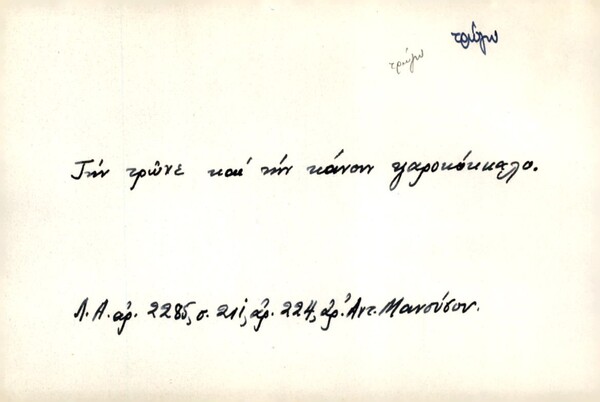 τρώγω
τρώγω
Τήν τρῶνε καί τήν κάνουν ψαροκόκκαλο.
Λ.Α. ἀρ. 2285, σ. 211, ἀρ. 224, ἀρ. Ἀντ. Μανούσου.